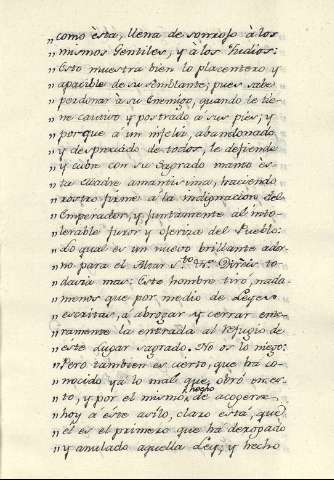 „ como èsta, llena de sonrojo à los
„ mismos Gentiles, y à los Judios:
„ Esto muestra bien lo placentero y
„ apacible de su semblante; pues sabe
„ perdonar à su Enemigo, quando le tie-
„ ne cautivo y postrado à sus pies; y
„ porque à un infeliz, abandonado
„ y despreciado de todos, le defiende
„ y cubre con su Sagrado manto es-
„ ta Madre amantisima, haciendo
„ rostro firme à la indignacion del
„ Emperador, y juntamente al into-
„ lerable furor y ojeriza del Pueblo:
„ Lo qual es un nuevo brillante ador-
„ no para el Altar Sto. Vrõ. Diràis to-
„ davia mas: Este hombre tirò, nada
„ menos que por medio de Leyes
„ escritas, à abrogar y cerrar ente-
„ ramente la entrada al refugio de
„ este Lugar sagrado. No os lo niego:
„ Pero tambien es cierto, que ha co-
„ nocido ya lo mal que obrò en es-
„ to, y por el mismo hecho de acogerse
„ hoy à este asilo, claro està, que
„ èl es el primero que ha derogado
„ y anulado aquella Ley; y hecho